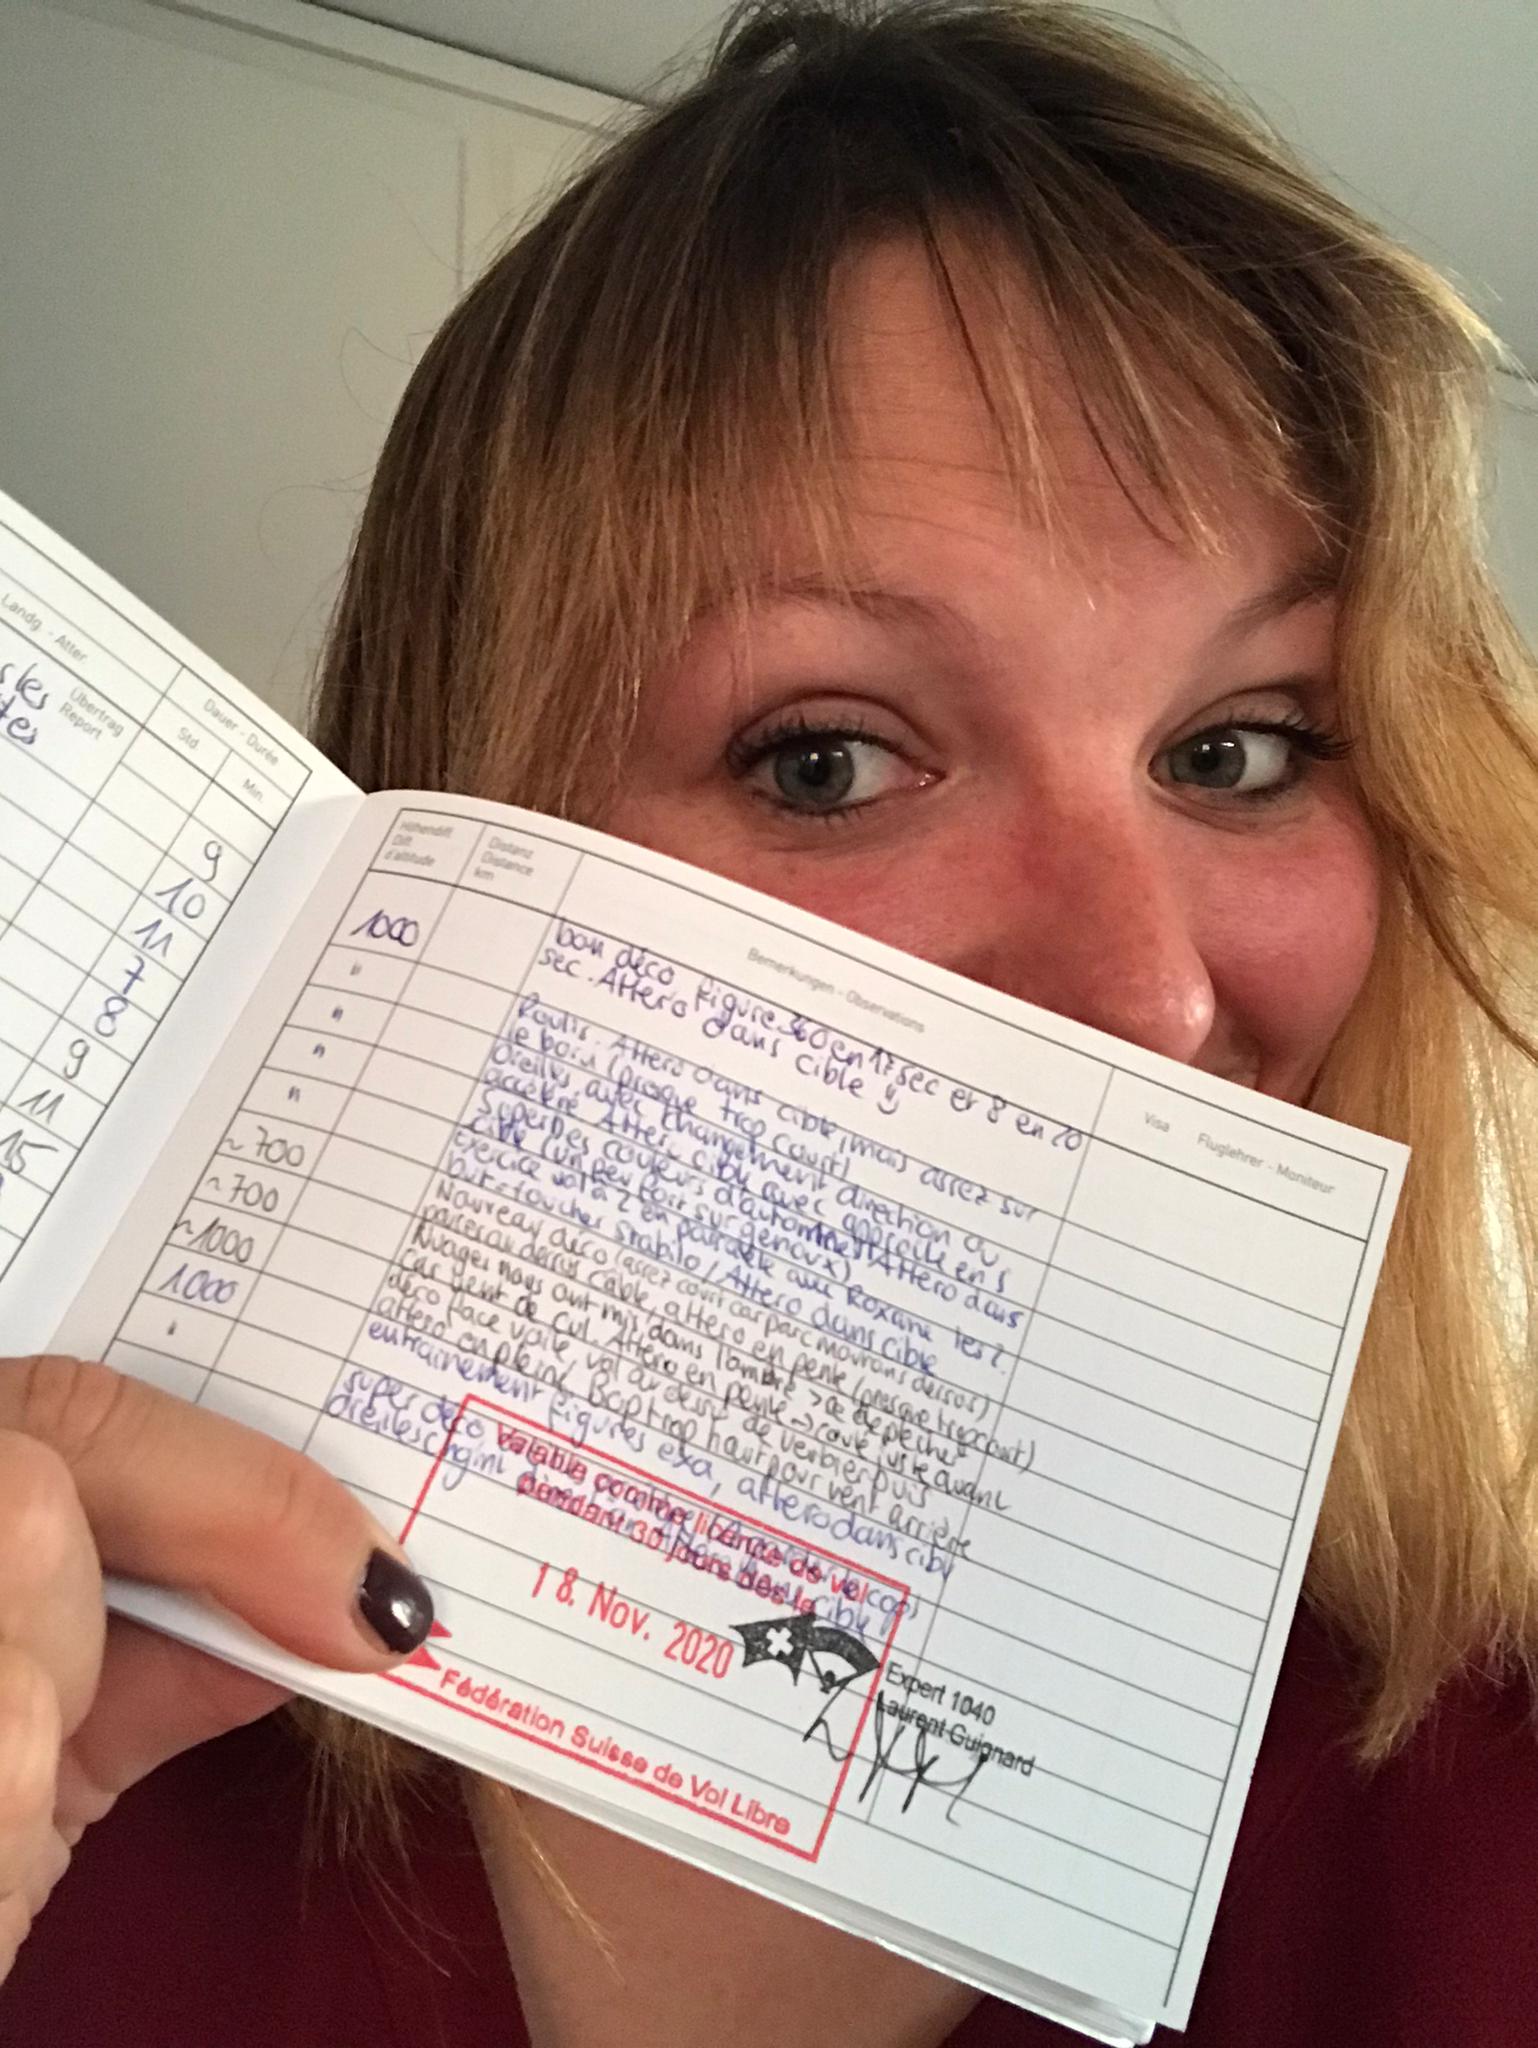 Landg - Atter.
Dauer - Durée
s les
tes
Übertrag
Report
Std.
Min.
9
10
11
7
8
9
11
15
Höhendiff.
Diff.
d'altitude
Distanz
Distance
km
Bemerkungen - Observations
Visa Fluglehrer - Moniteur
1000
"
"
"
"
~700
~700
~1000
1000
"
bon déco figure 360 en 17 sec et 8 en 20
sec. Attero dans cible
Roulis. Attero dans cible, mais assez sur
le bord (presque trop court)
Oreilles avec changement direction ou
accéléré Atter. cible avec approche en S
Superbes couleurs d'automne!! Attero dans
cible (un peu fort sur genoux)
exercice vol à 2 en parallèle avec Roxane les 2.
but = toucher stabilo / Attero dans cible
Nouveau déco (assez court car parc moutons dessous)
passer au dessus cable, attero en pente (presque trop court)
Nuages nous ont mis dans l'ombre > se dépêcher
car vent de cul. Attero en pente juste avant
déco face voile, vol au dessus de verbier puis
attero en plein! Bcp trop haut pour vent arrière
entrainement figures exa, attero dans cible
super déco
oreilles
Valable comme licence de vol
pendant 30 jours dès le
18. Nov. 2020
Fédération Suisse de Vol Libre
Expert 1040
Laurent Guignard